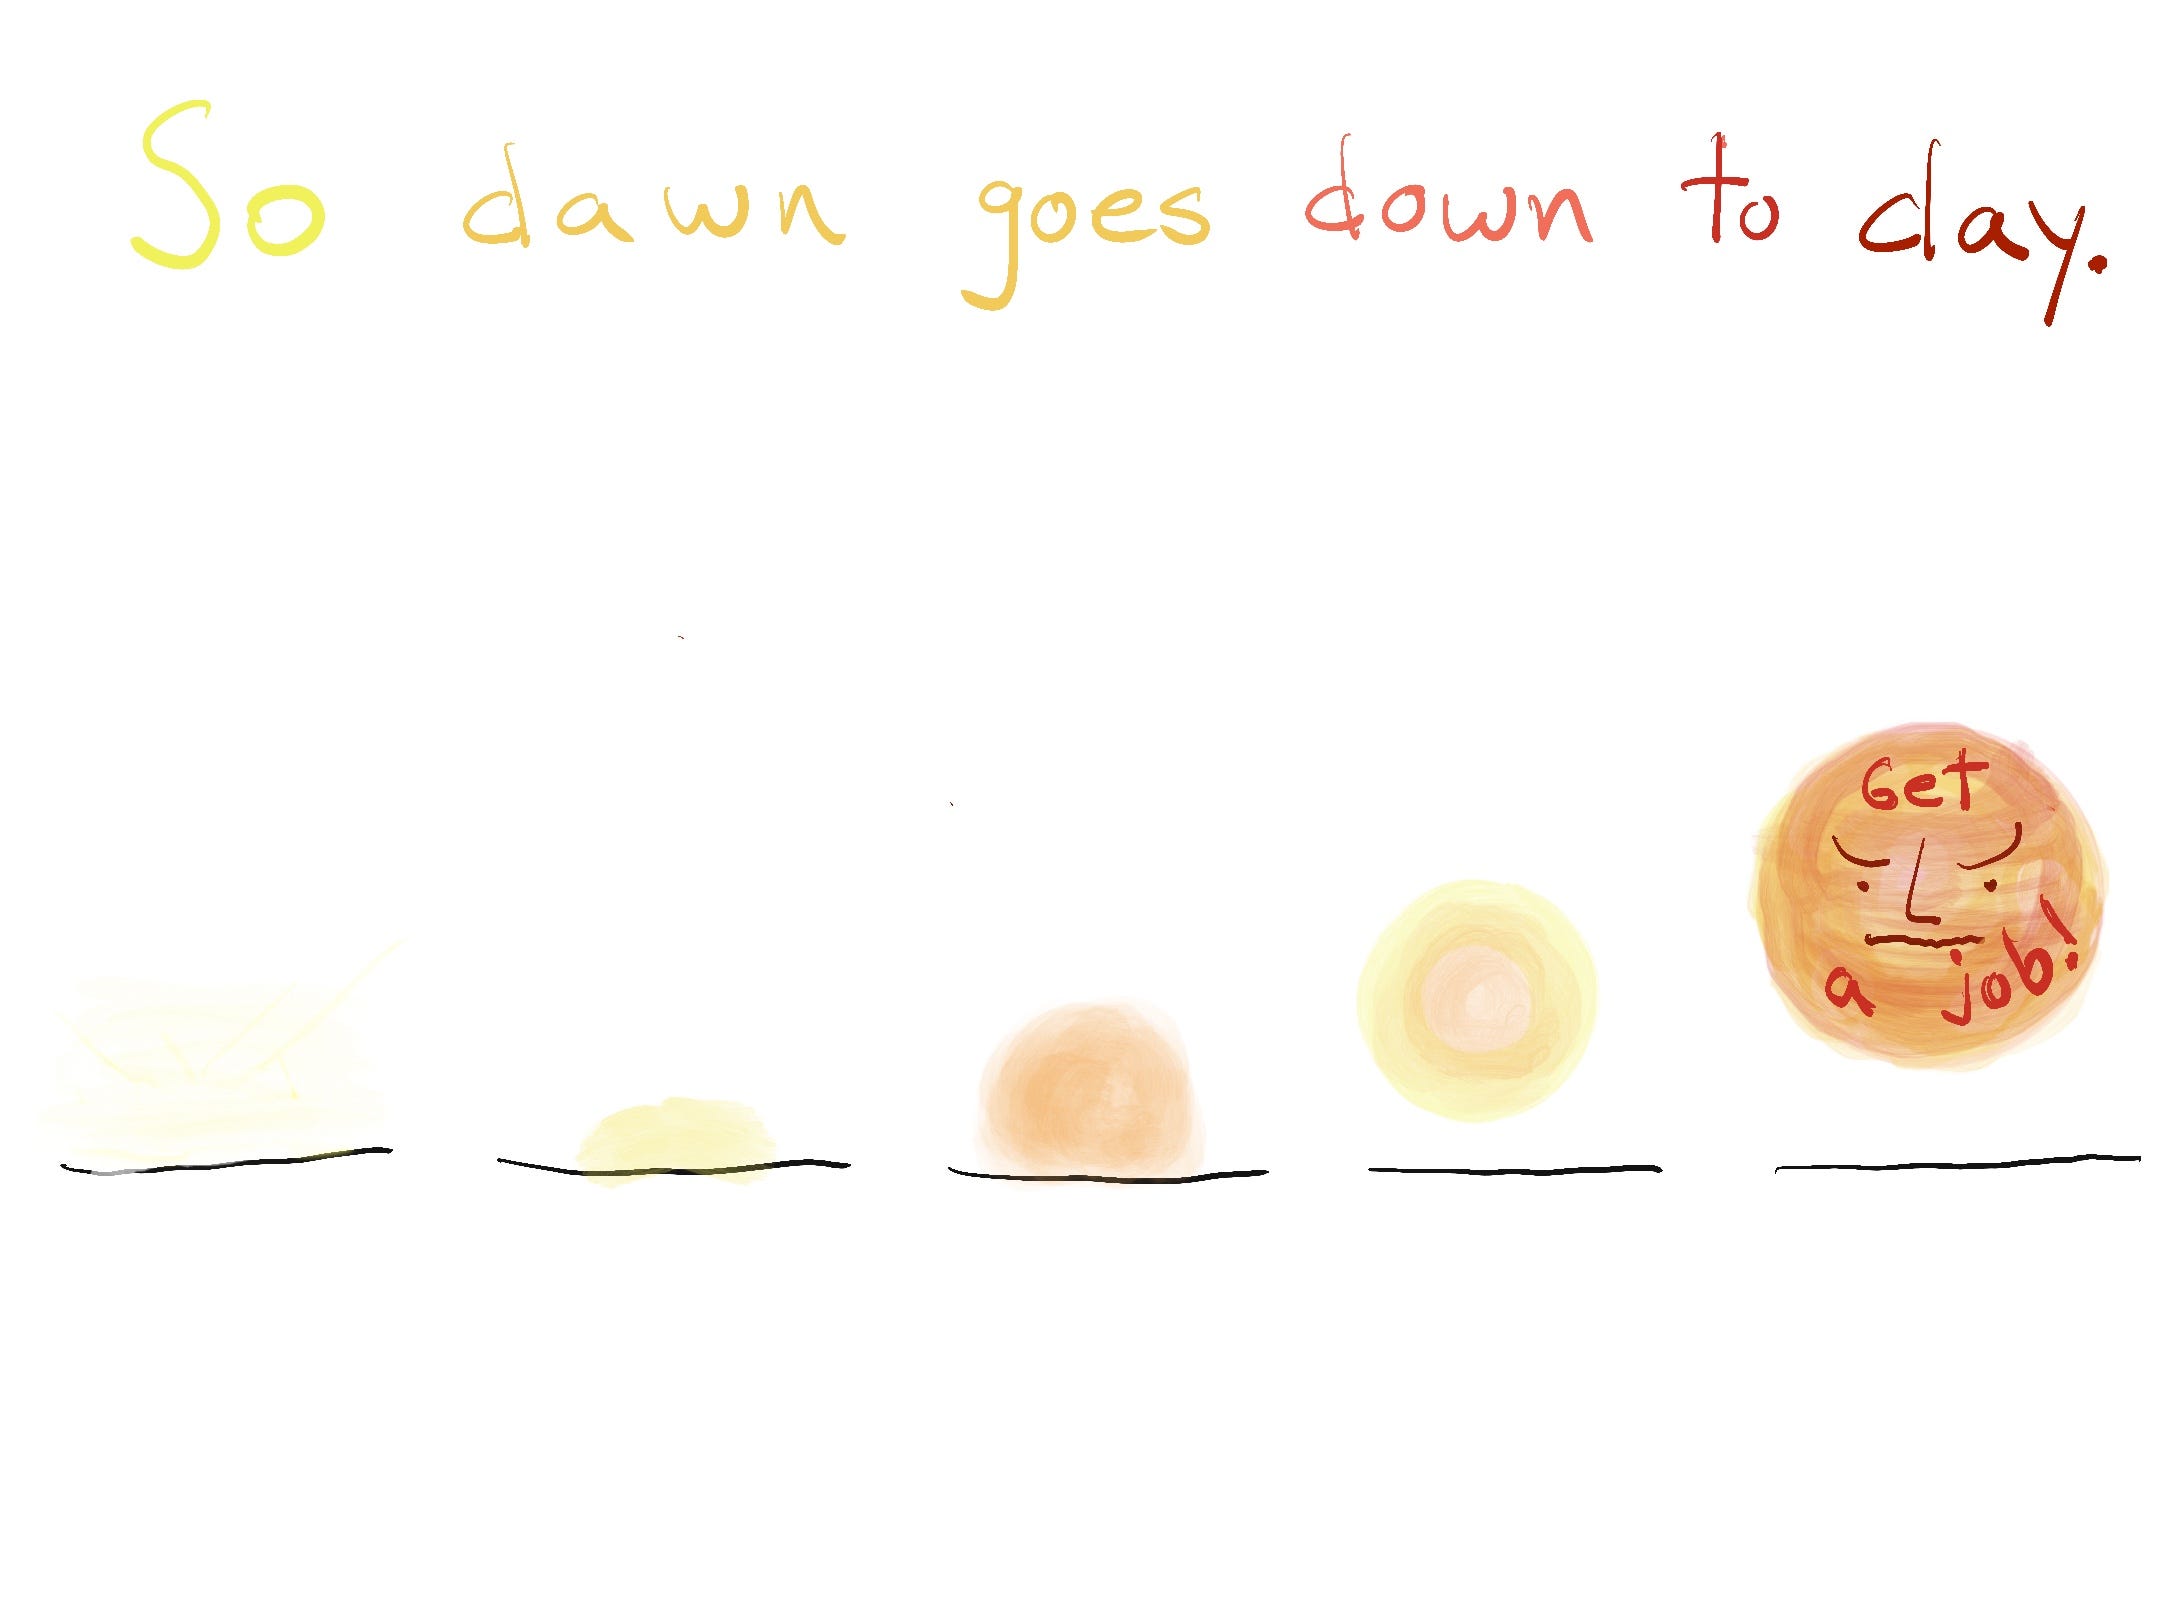 So dawn goes down to day.
Get
a job!